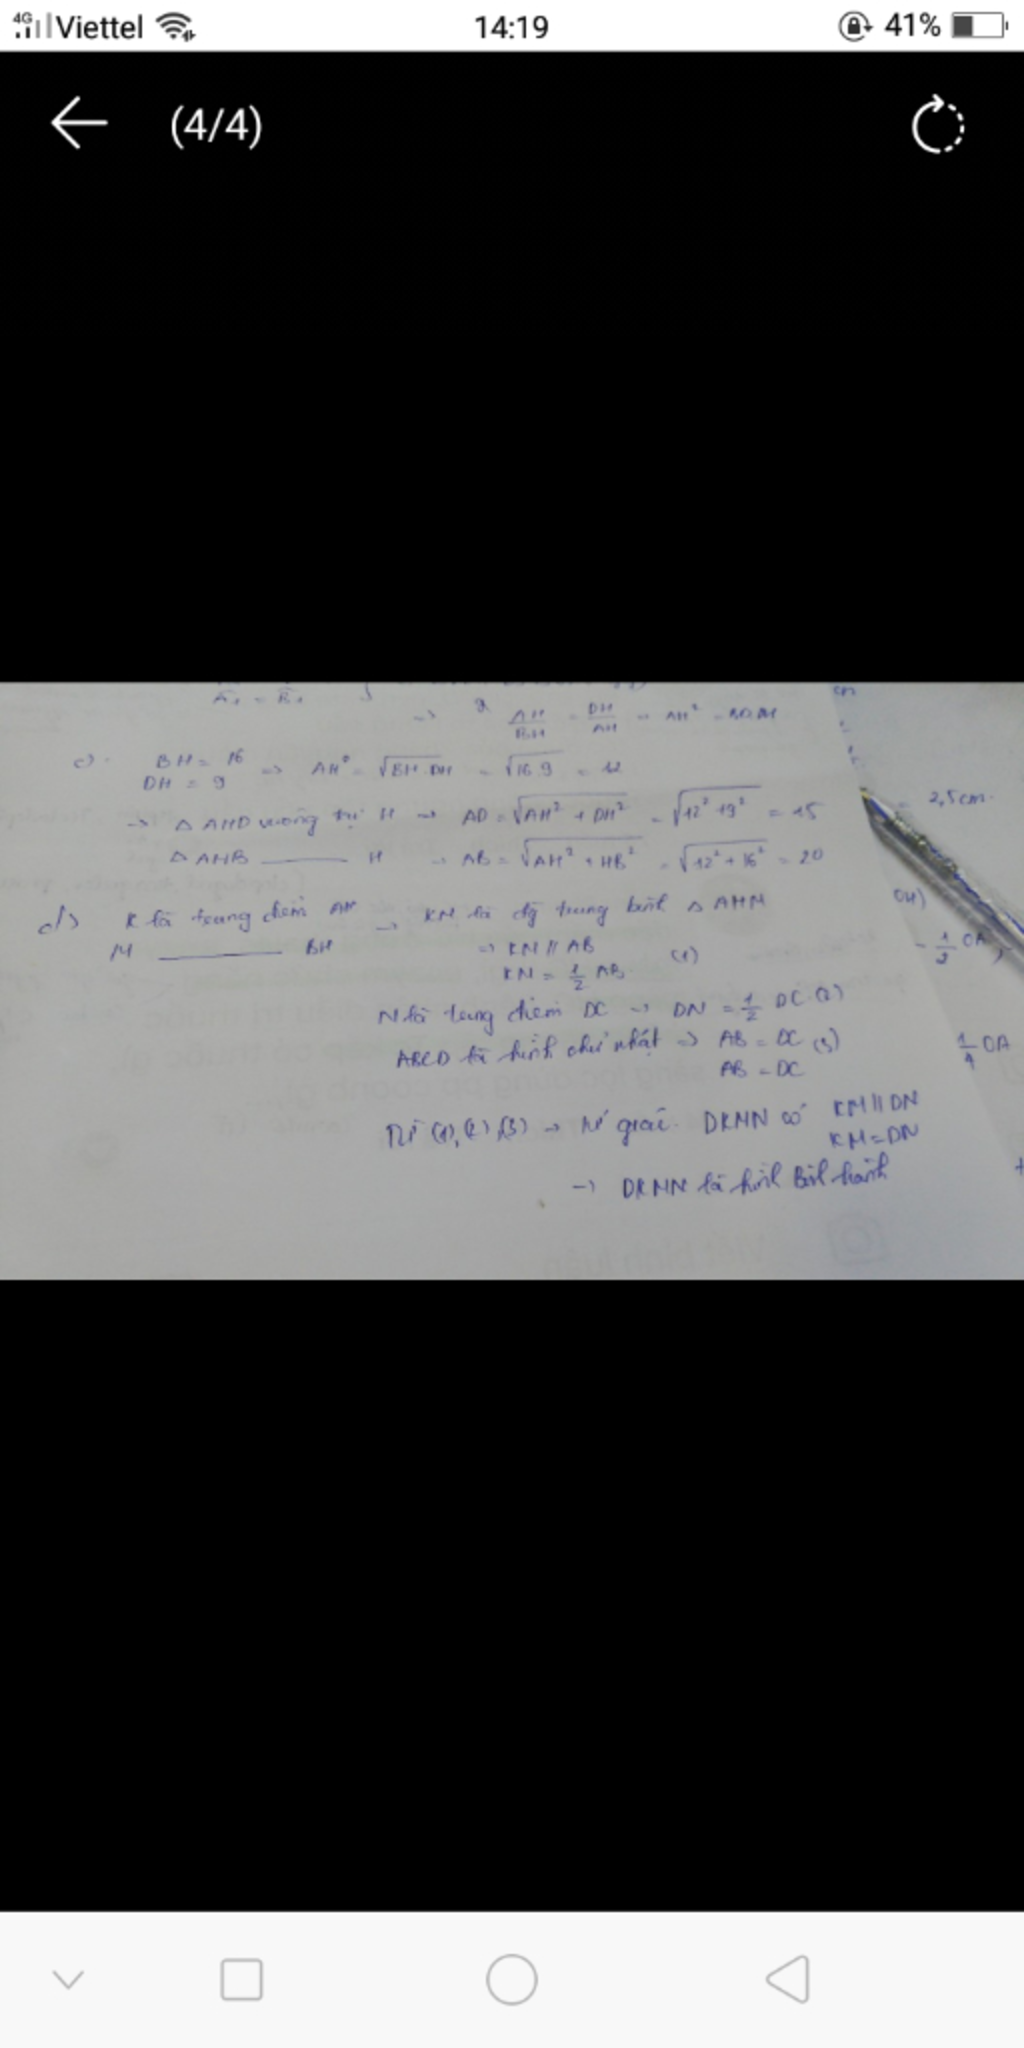 4G Viettel 14:19 41%
(4/4)
AH/BH = DH/AH → AH² =
c). BH = 16
DH = 9 => AH = √BH.DH = √16.9 = 12
→ △ AHD vuông tại H → AD = √AH² + DH² = √12² + 9² = 15
△ AHB ——— H → AB = √AH² + HB² = √12² + 16² = 20
d) K là trung điểm AH → KM là đg trung bình △ AHM
M ——— BH → KM // AB (1)
KM = 1/2 AB
N là trung điểm DC → DN = 1/2 DC (2)
ABCD là hình chữ nhật => AB = DC (3)
AB = DC
Từ (1), (2), (3) → tứ giác DKMN có KM // DN
KM = DN
→ DKMN là hình bình hành
cm
= 2,5cm.
OH)
- 1/2 OA
1/4 OA